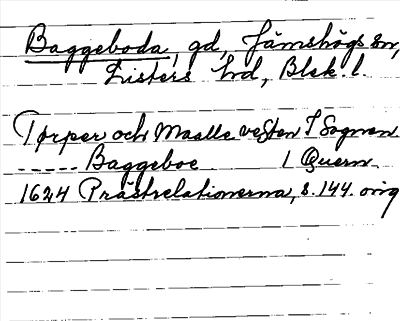 Baggeboda, gd, Jämshögs sn,
Listers hd, Blek. l.
Torper och Maalle vesten I Sognen
----- Baggeboe 1 Quern
1624 Prästrelationerna, s. 144. orig